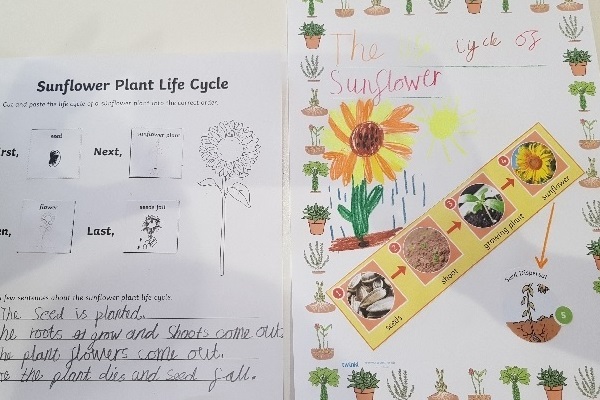 Sunflower Plant Life Cycle
Cut and paste the life cycle of a sunflower plant into the correct order.
seed
sunflower plant
rst,
Next,
flower
seeds fall
en,
Last,
few sentences about the sunflower plant life cycle.
The Seed is planted.
he roots grow and Shoots come out
he plant flowers come out.
the plant dies and seed fall.
The Cycle of
Sunflower
1 seeds
2 shoot
3 growing plant
4 sunflower
Seed Dispersal
5
twinkl